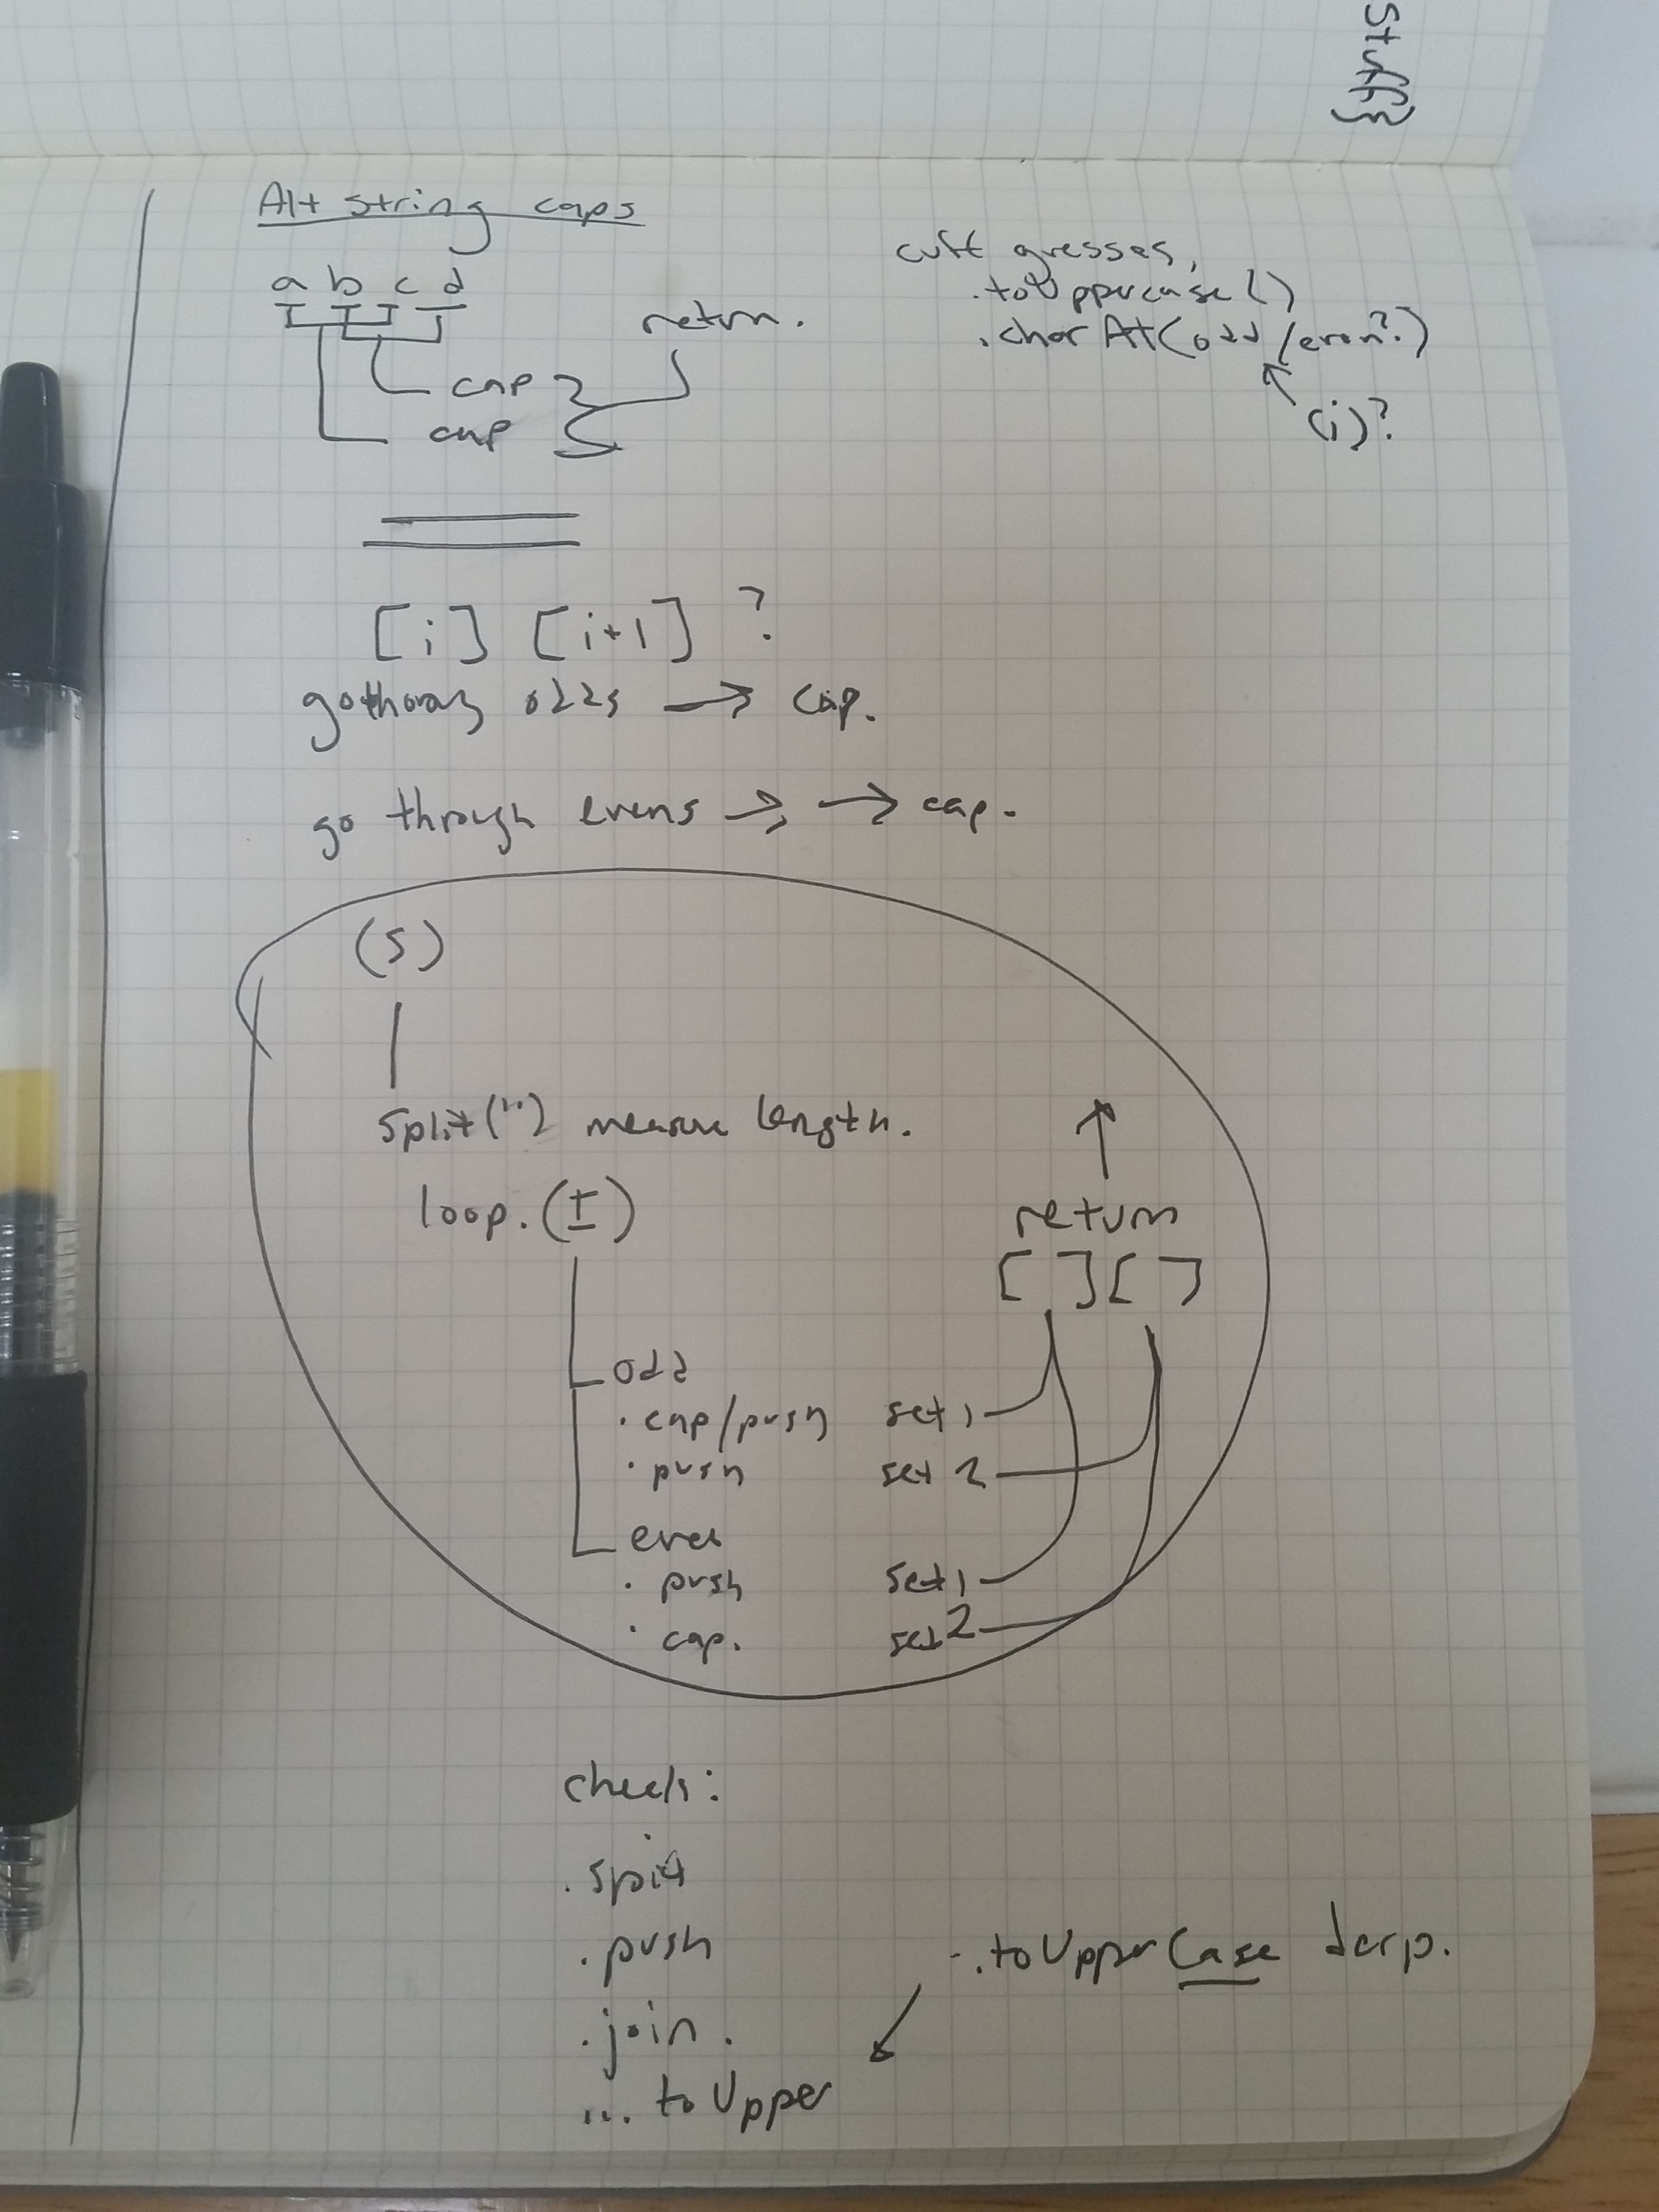 Stuff}
Alt string caps
a b c d
return.
cap
cap
guesses,
.toUppercase()
.charAt(odd/even?)
(i)?
[i] [i+1] ?
odds → cap.
go through evens → → cap.
(s)
split('') measure length.
loop. (I)
return
[ ] [ ]
odd
. cap/push set 1
. push set 2
even
. push set 1
. cap. set 2
check:
. split
. push
. join .
... toUpper
.toUpperCase derp.